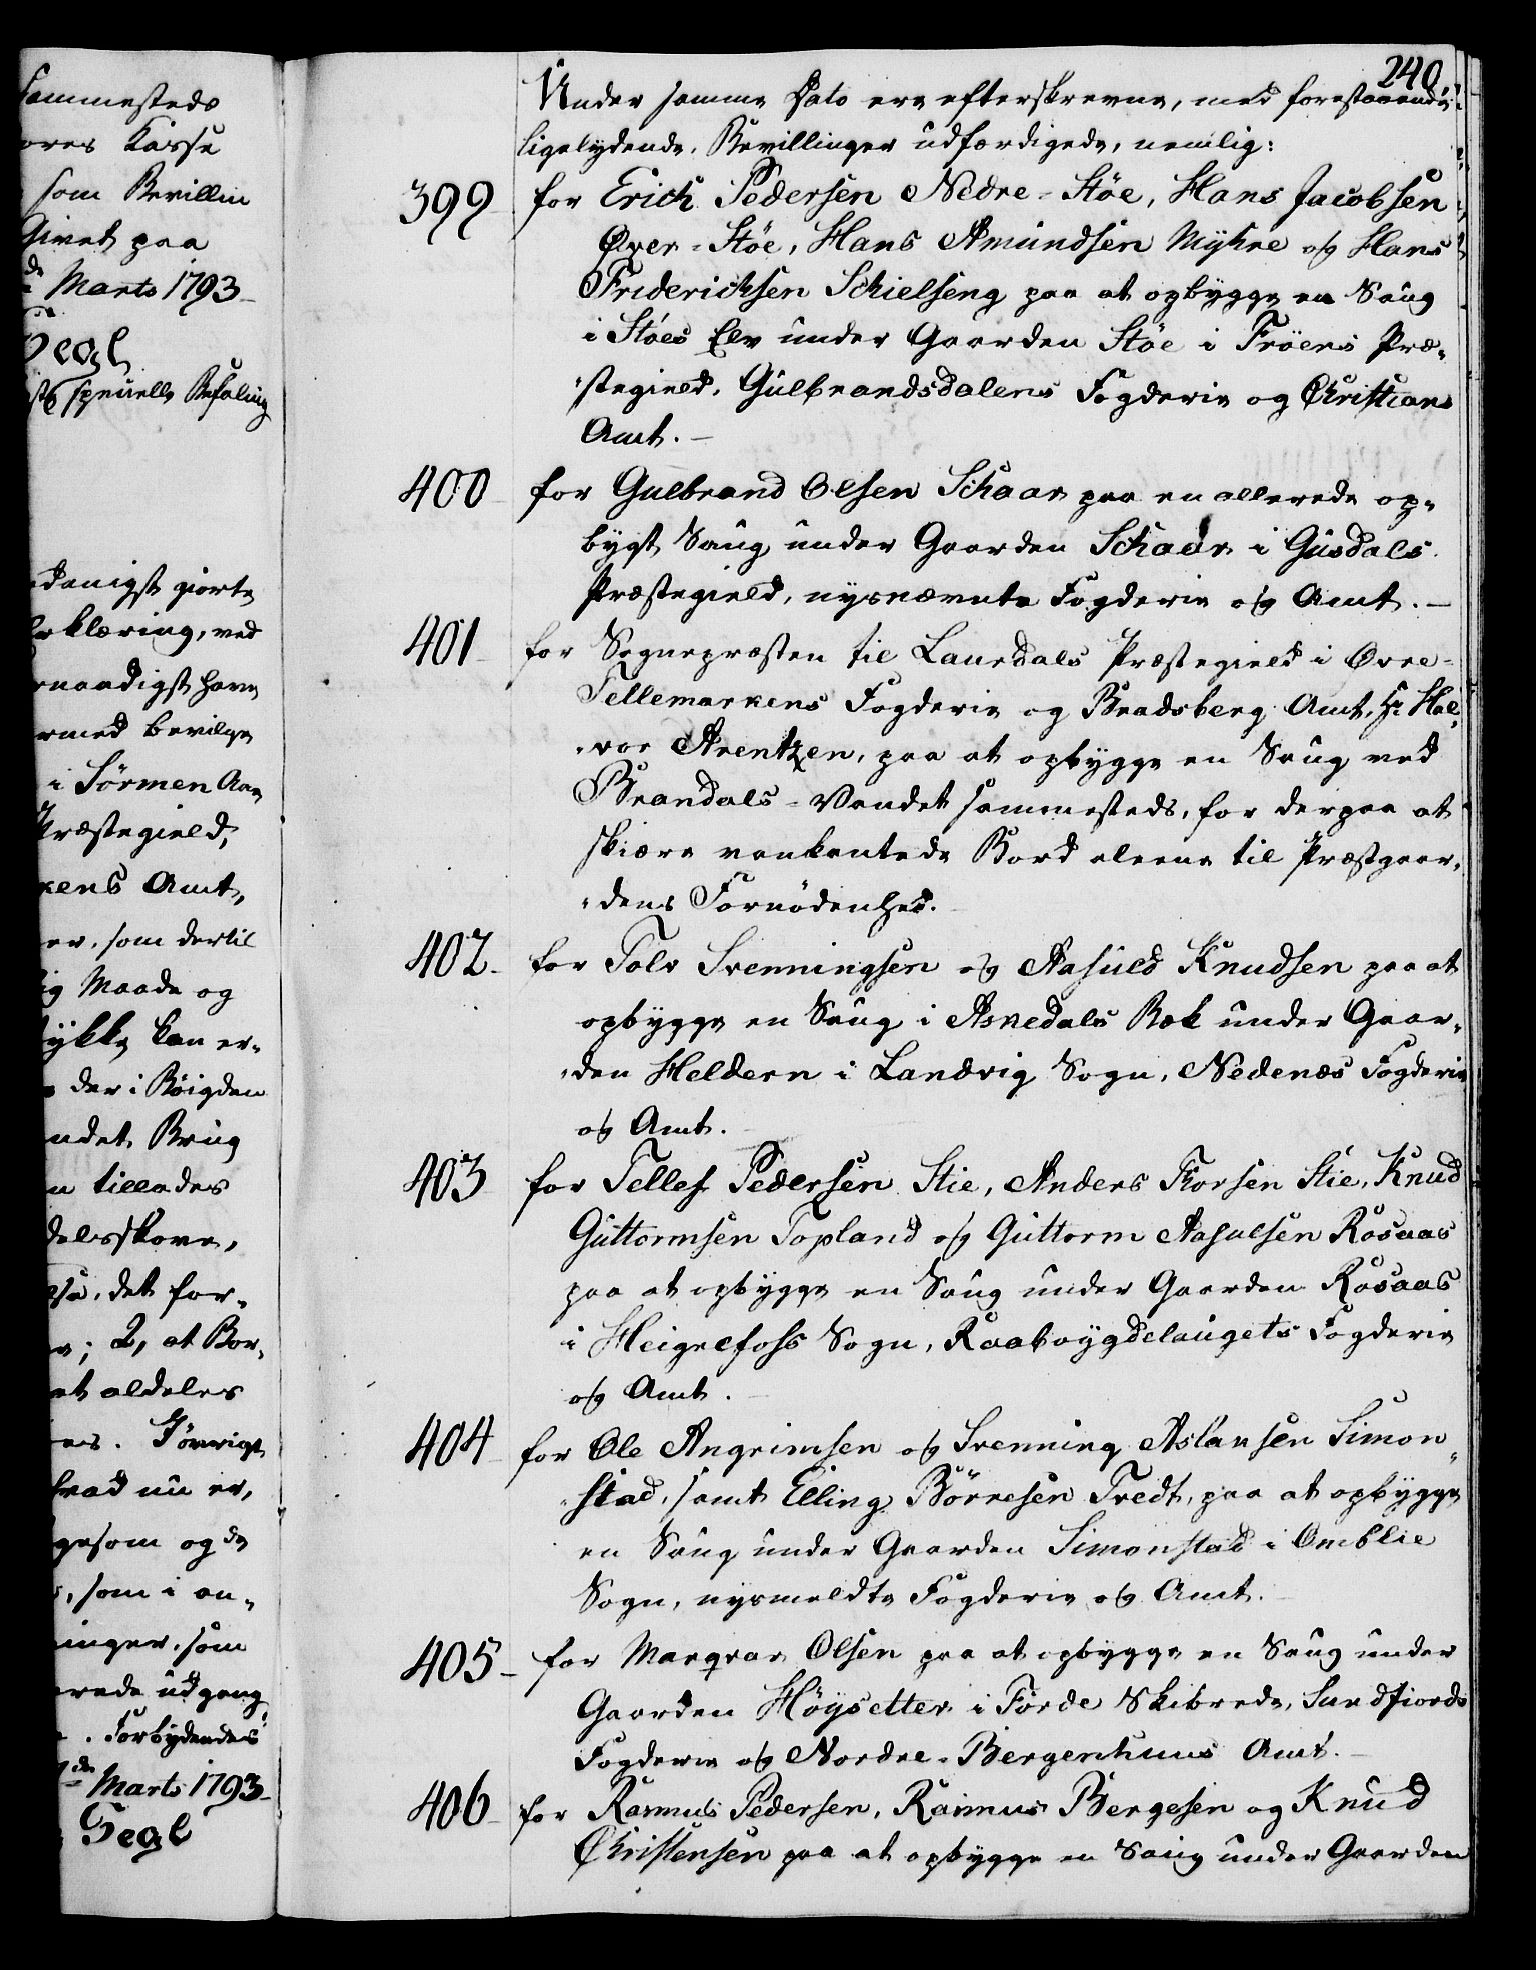 sammesteds
ores Kasse
som Bevillin
Givet paa
de Marts 1793
Segl
specielle Befaling
danigst giorte
Erklæring, ved
naadigst have
ermed bevilge
i Sörmen Aae
Præstegield,
kens Amt,
er, som dertil
ig Maade og
ykke kan er-
der i Böigden
ndet Brug
n tillades
delsskove,
det for-
2, at Bor-
et aldeles
es. I övrigt
hvad nu er,
gesom og de
, som i an-
inger, som
erede udgang
. Forbydendes
de Marts 1793
Segl
240.
Under samme Dato ere efterskrevne, med forestaaende
ligelydende, Bevillinger udfærdigede, nemlig:
399 for Erich Pedersen Nedre-Stöe, Hans Jacobsen
Över-Stöe, Hans Amundsen Myhre og Hans
Friderichsen Schielseng paa at opbygge en Saug
i Stöes Elv under Gaarden Stöe i Fröens Præ-
stegield, Gulbrandsdalens Fogderie og Christians
Amt.
400 for Gulbrand Olsen Schaar paa en allerede op-
bygt Saug under Gaarden Schaar i Gusdals
Præstegield, nysnævnte Fogderie og Amt.
401 for Sognepræsten til Laurdals Præstegield i Övre-
Tellemarkens Fogderie og Bradsberg Amt, Hr Hal-
vor Arentzen, paa at opbygge en Saug ved
Brandals-Vandet sammesteds, for derpaa at
skiære vankantede Bord alene til Præstgaar-
dens Fornödenhed.
402 for Tolv Svenningsen og Aasuld Knudsen paa at
opbygge en Saug i Asnedals Bæk under Gaar-
den Heldern i Landvig Sogn, Nedenæs Fogderie
og Amt.
403 for Tellef Pedersen Stie, Anders Torsen Stie, Knud
Guttormsen Topland og Guttorm Aasulsen Rosaas
paa at opbygge en Saug under Gaarden Rosaas
i Heigrefoss Sogn, Raaboygdelaugets Fogderie
og Amt.
404 for Ole Angrimsen og Svenning Aslansen Simon-
stad, samt Elling Börresen Tvedt, paa at opbygge
en Saug under Gaarden Simonstad i Omblie
Sogn, nysmeldte Fogderie og Amt.
405 for Marqvar Olsen paa at opbygge en Saug under
Gaarden Höysetter i Förde Skibrede, Sundfiords
Fogderie og Nordre-Bergenhuus Amt.
406 for Rasmus Pedersen, Rasmus Bergesen og Knud
Christensen paa at opbygge en Saug under Gaarden